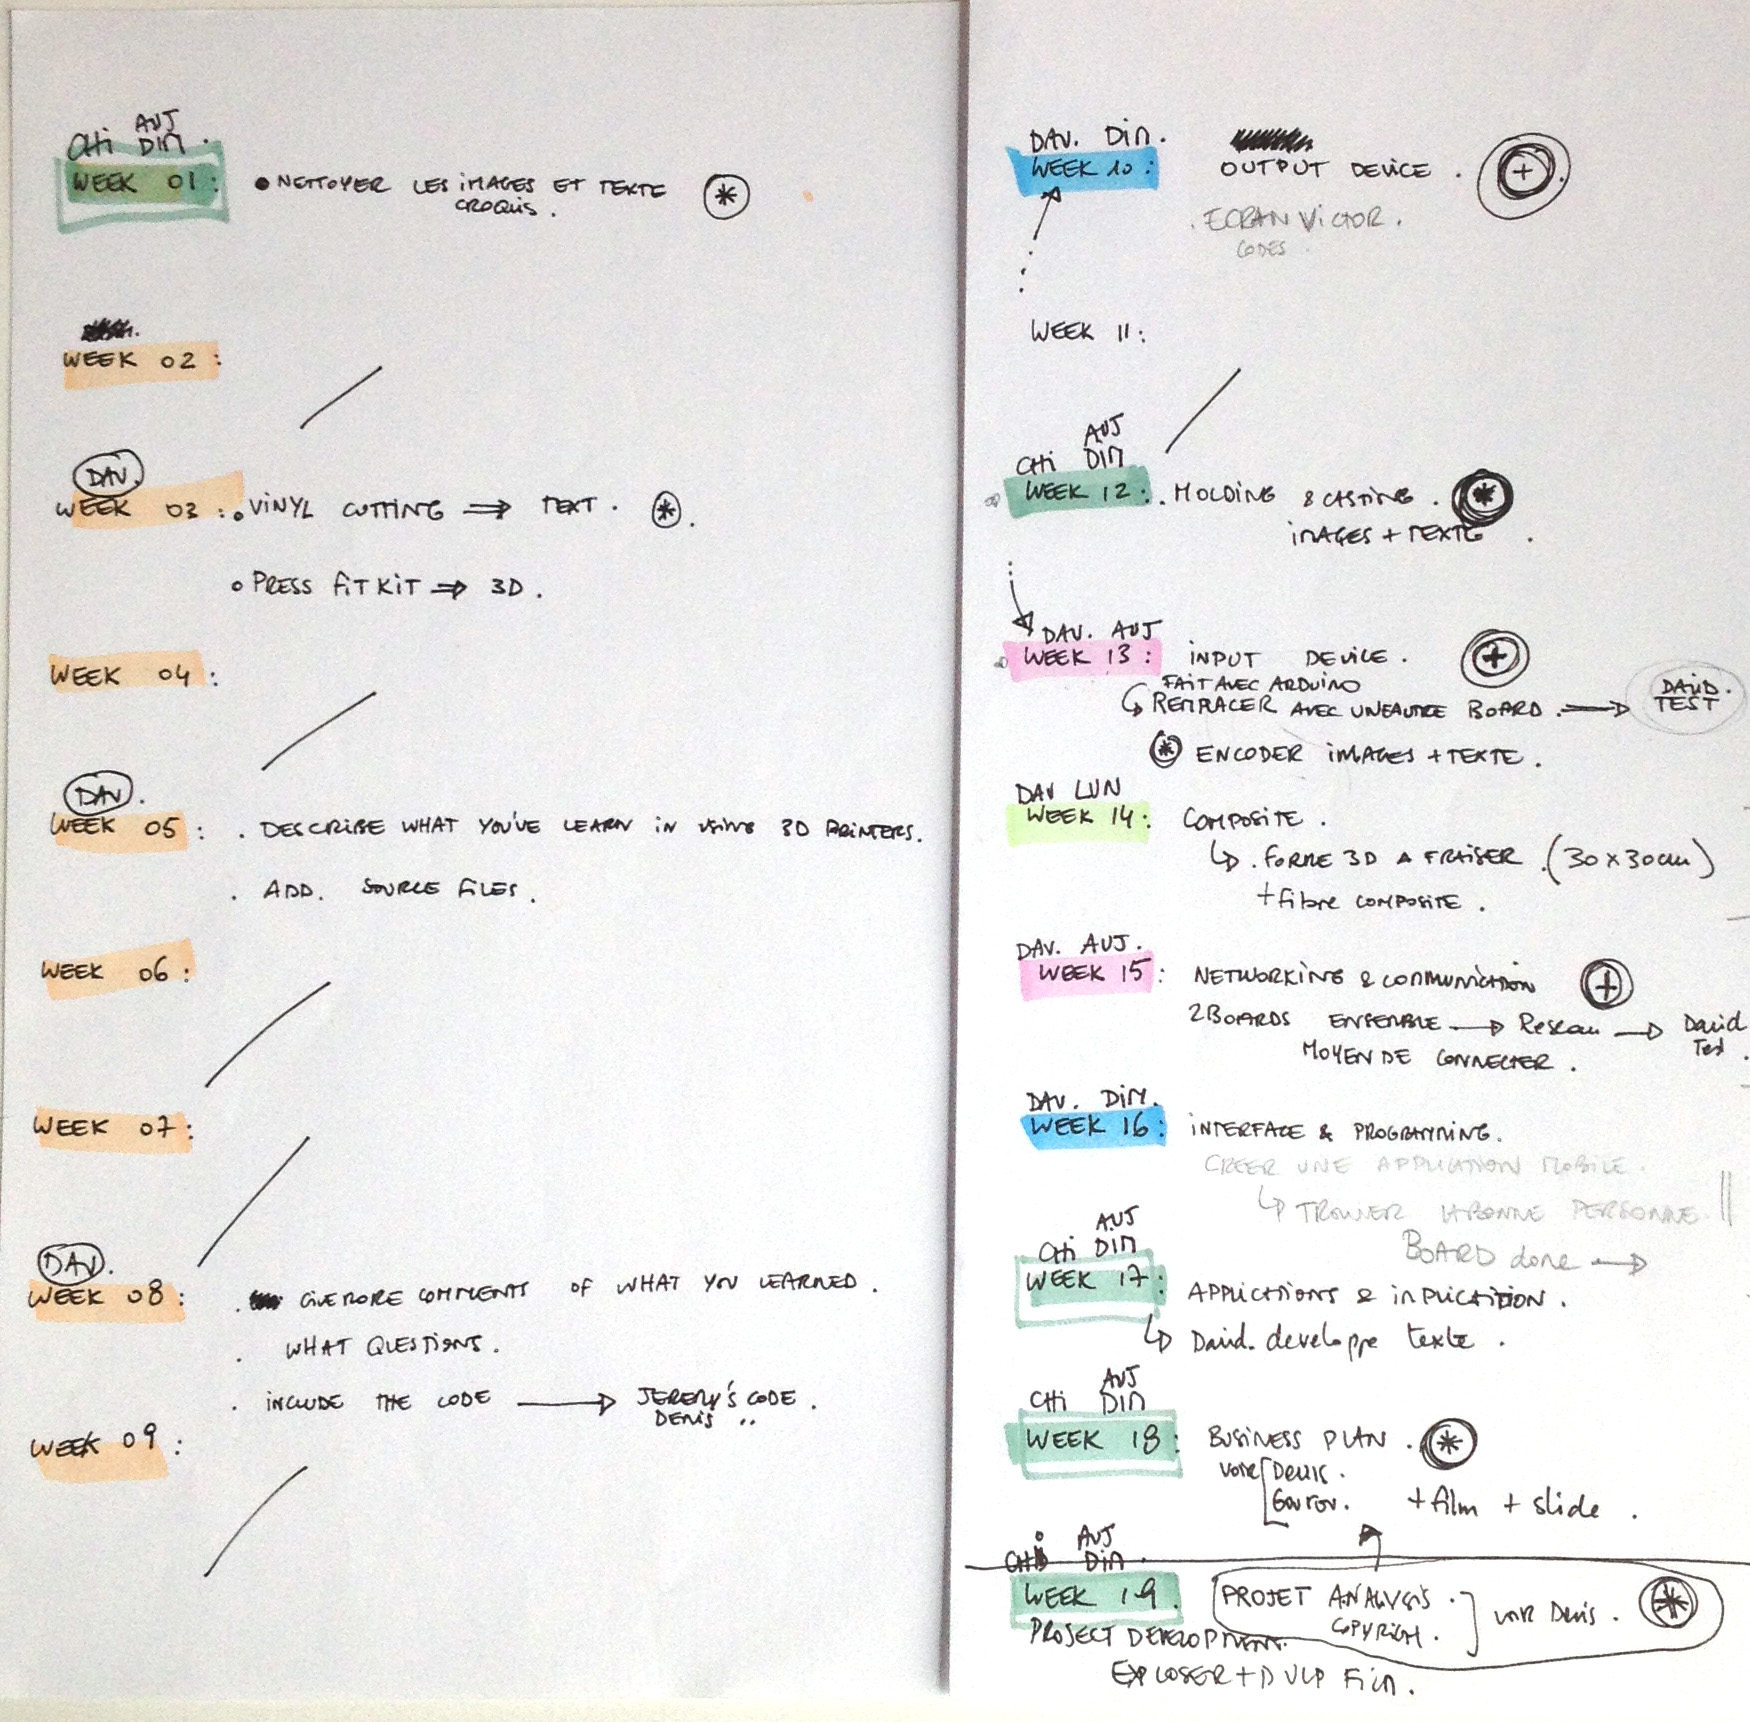 AUJ
CHi DIM.
WEEK 01:
• NETTOYER LES IMAGES ET TEXTE
CROQUIS.
WEEK 02:
DAV.
WEEK 03:
• VINYL CUTTING ⇒ TEXT.
• PRESS FIT KIT ⇒ 3D.
WEEK 04:
DAV.
WEEK 05:
. DESCRIBE WHAT YOU'VE LEARN IN USING 3D PRINTERS.
. ADD. SOURCE FILES.
WEEK 06:
WEEK 07:
DAV.
WEEK 08:
. GIVE MORE COMMENTS OF WHAT YOU LEARNED.
. WHAT QUESTIONS.
. INCLUDE THE CODE → JEREMY'S CODE.
DENIS "
WEEK 09:
DAV. DIM.
WEEK 10: OUTPUT DEVICE.
. ECRAN VICTOR.
CODES
WEEK 11:
AUJ
CHi DIM
WEEK 12: . MOLDING & CASTING.
IMAGES + TEXTE.
DAV. AUJ
WEEK 13: INPUT DEVICE.
FAIT AVEC ARDUINO
↳ REMPLACER AVEC UNE AUTRE BOARD. → DAVID. TEST
ENCODER IMAGES + TEXTE.
DAV LUN
WEEK 14: COMPOSITE.
↳ . FORME 3D A FRAISER. (30 x 30 cm)
+ fibre COMPOSITE.
DAV. AUJ.
WEEK 15: NETWORKING & COMMUNICATION
2 BOARDS ENSEMBLE → Reseau → David Test.
MOYEN DE CONNECTER.
DAV. DIM.
WEEK 16: INTERFACE & PROGRAMMING.
CREER UNE APPLICATION MOBILE.
↳ TROUVER LA BONNE PERSONNE.
BOARD done →
AUJ
CHi DIM
WEEK 17: APPLICATIONS & INPLICATION.
↳ David. developpe texte.
AUJ
CHi DIM
WEEK 18: BUSINESS PLAN.
VOIR Denis.
+ film + slide.
AUJ
CHi DIM.
WEEK 19. PROJET ANALYSIS.
COPYRIGH.
VOIR Denis.
PROJECT DEVELOPMENT.
EXPLOSER + DVLP FILM.